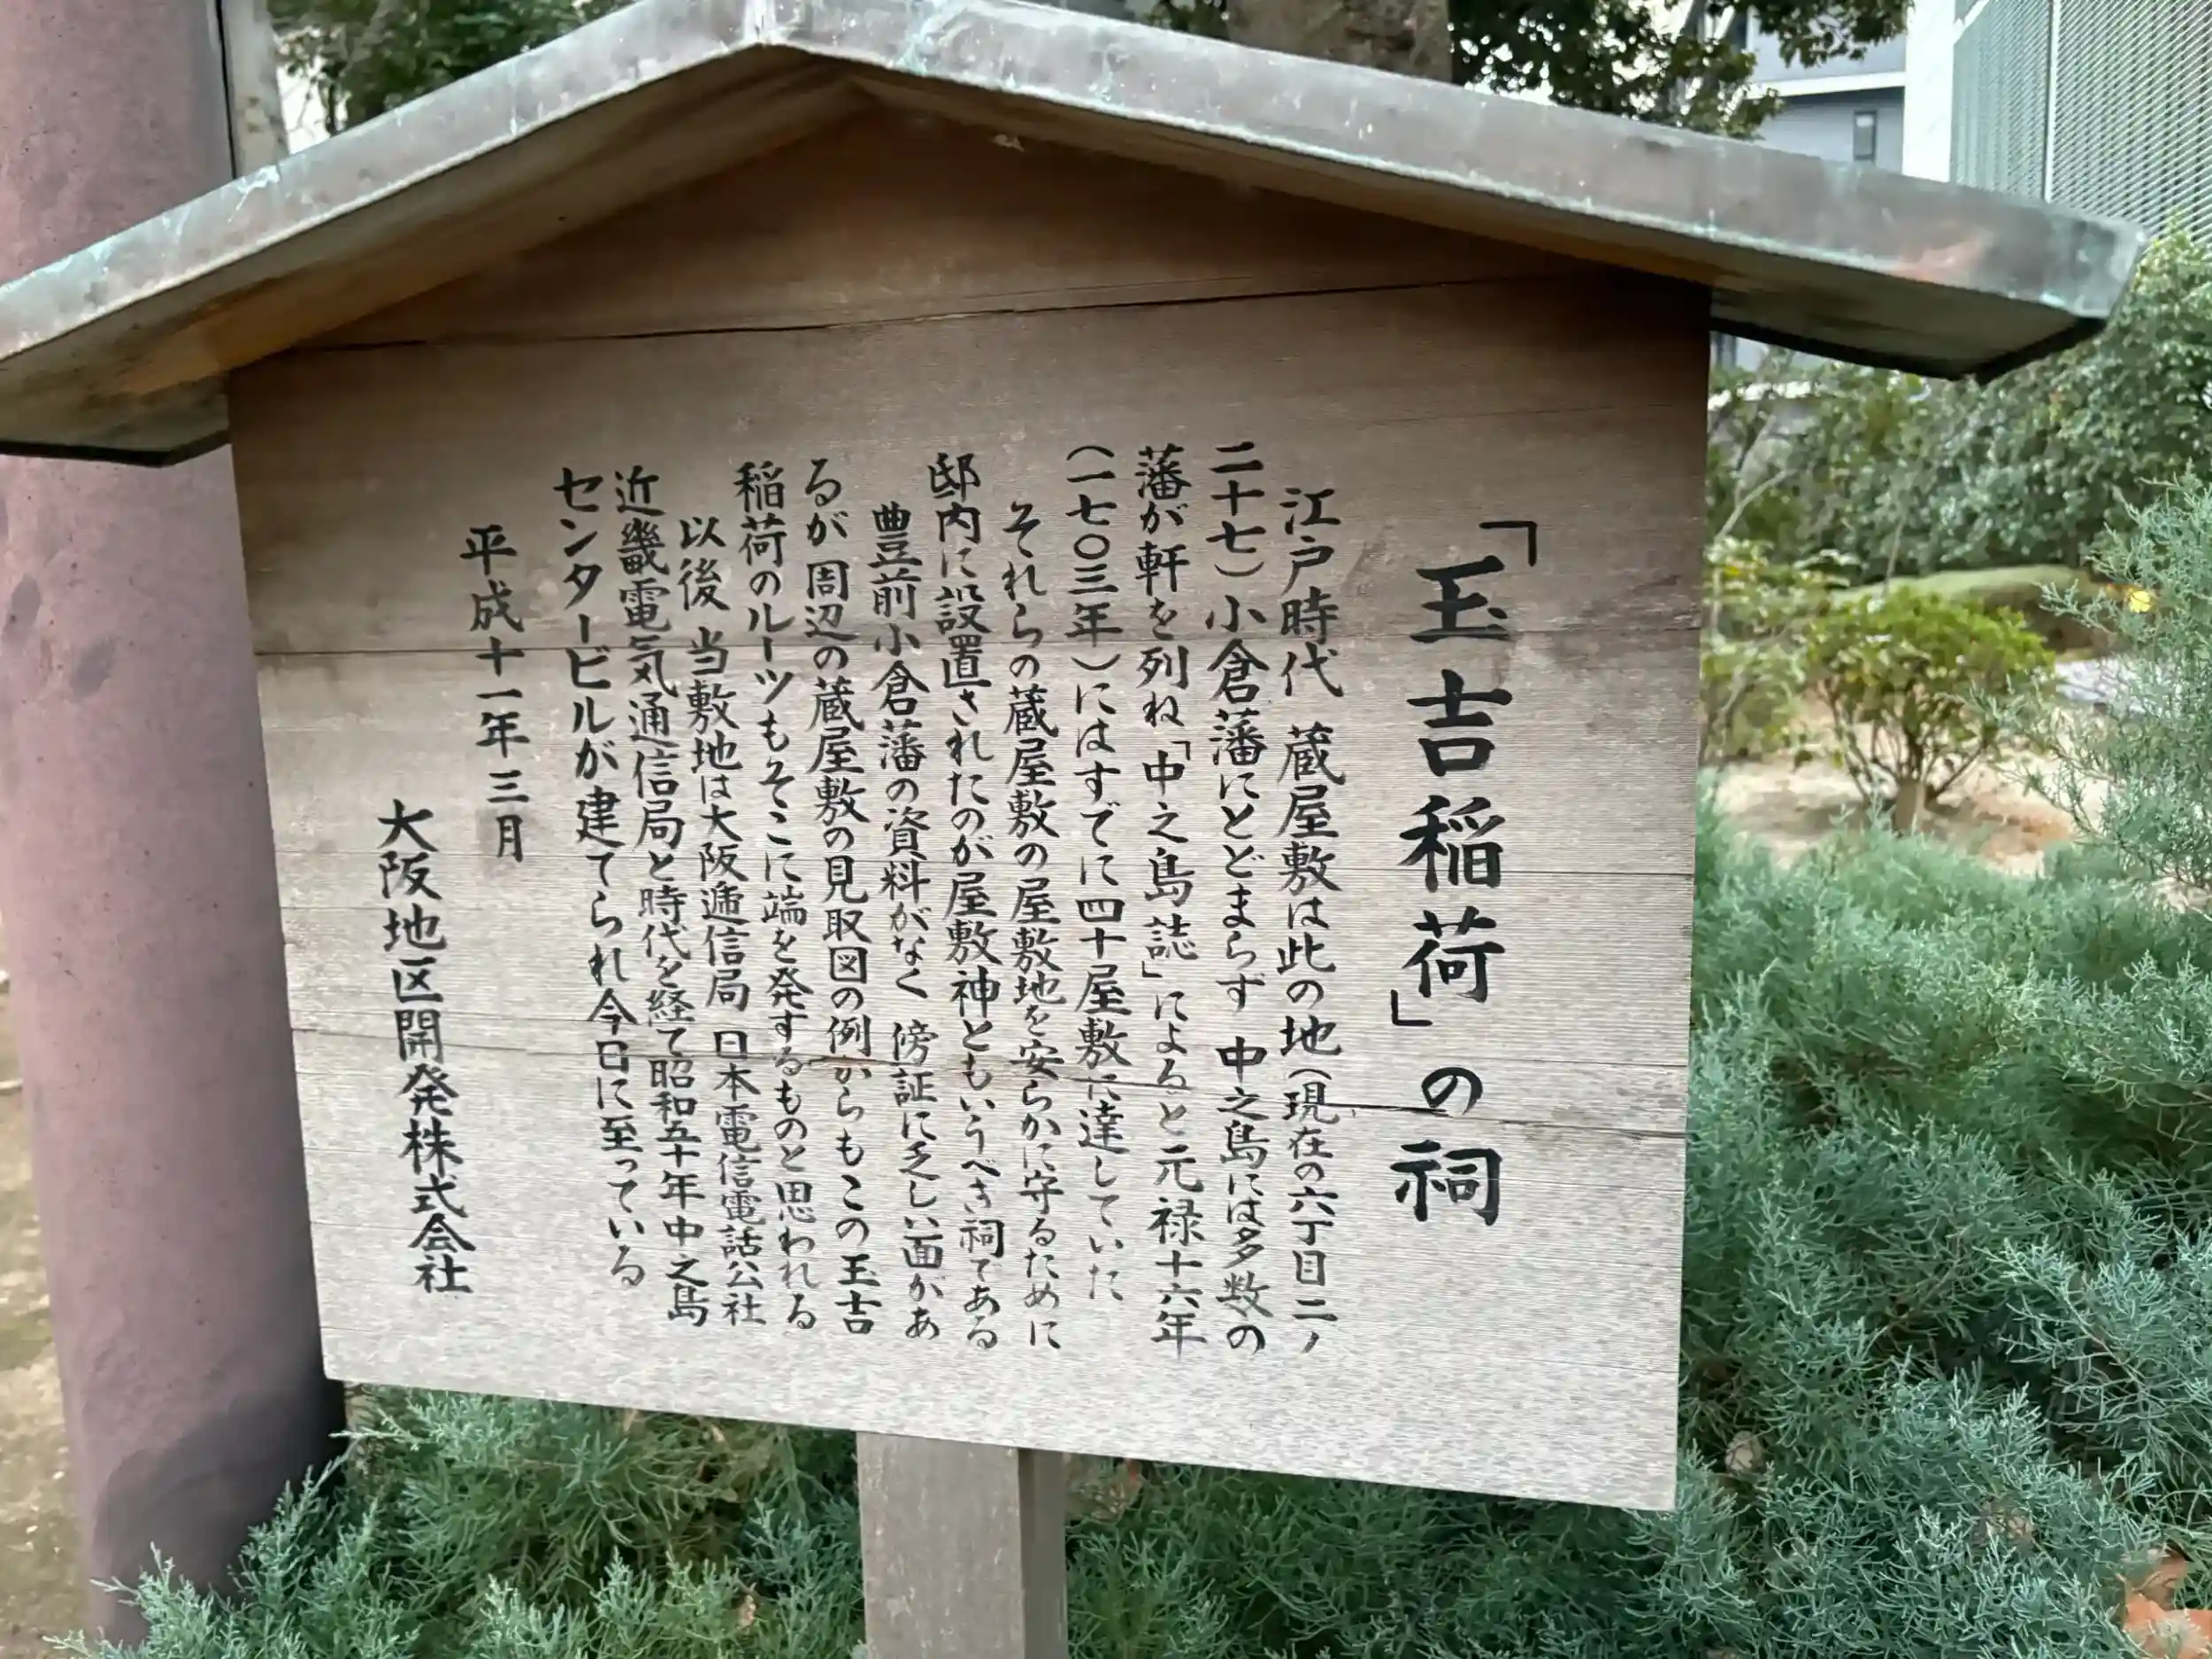 「玉吉稲荷」の祠
江戸時代 蔵屋敷は此の地(現在の六丁目二ノ
二十七)小倉藩にとどまらず 中之島には多数の
藩が軒を列ね「中之島誌」によると元禄十六年
(一七〇三年)にはすでに四十屋敷に達していた
それらの蔵屋敷の屋敷地を安らかに守るために
邸内に設置されたのが屋敷神ともいうべき祠である
豊前小倉藩の資料がなく 傍証に乏しい面があ
るが 周辺の蔵屋敷の見取図の例からもこの玉吉
稲荷のルーツもそこに端を発するものと思われる
以後 当敷地は大阪逓信局 日本電信電話公社
近畿電気通信局と時代を経て昭和五十年中之島
センタービルが建てられ今日に至っている
平成十一年三月
大阪地区開発株式会社